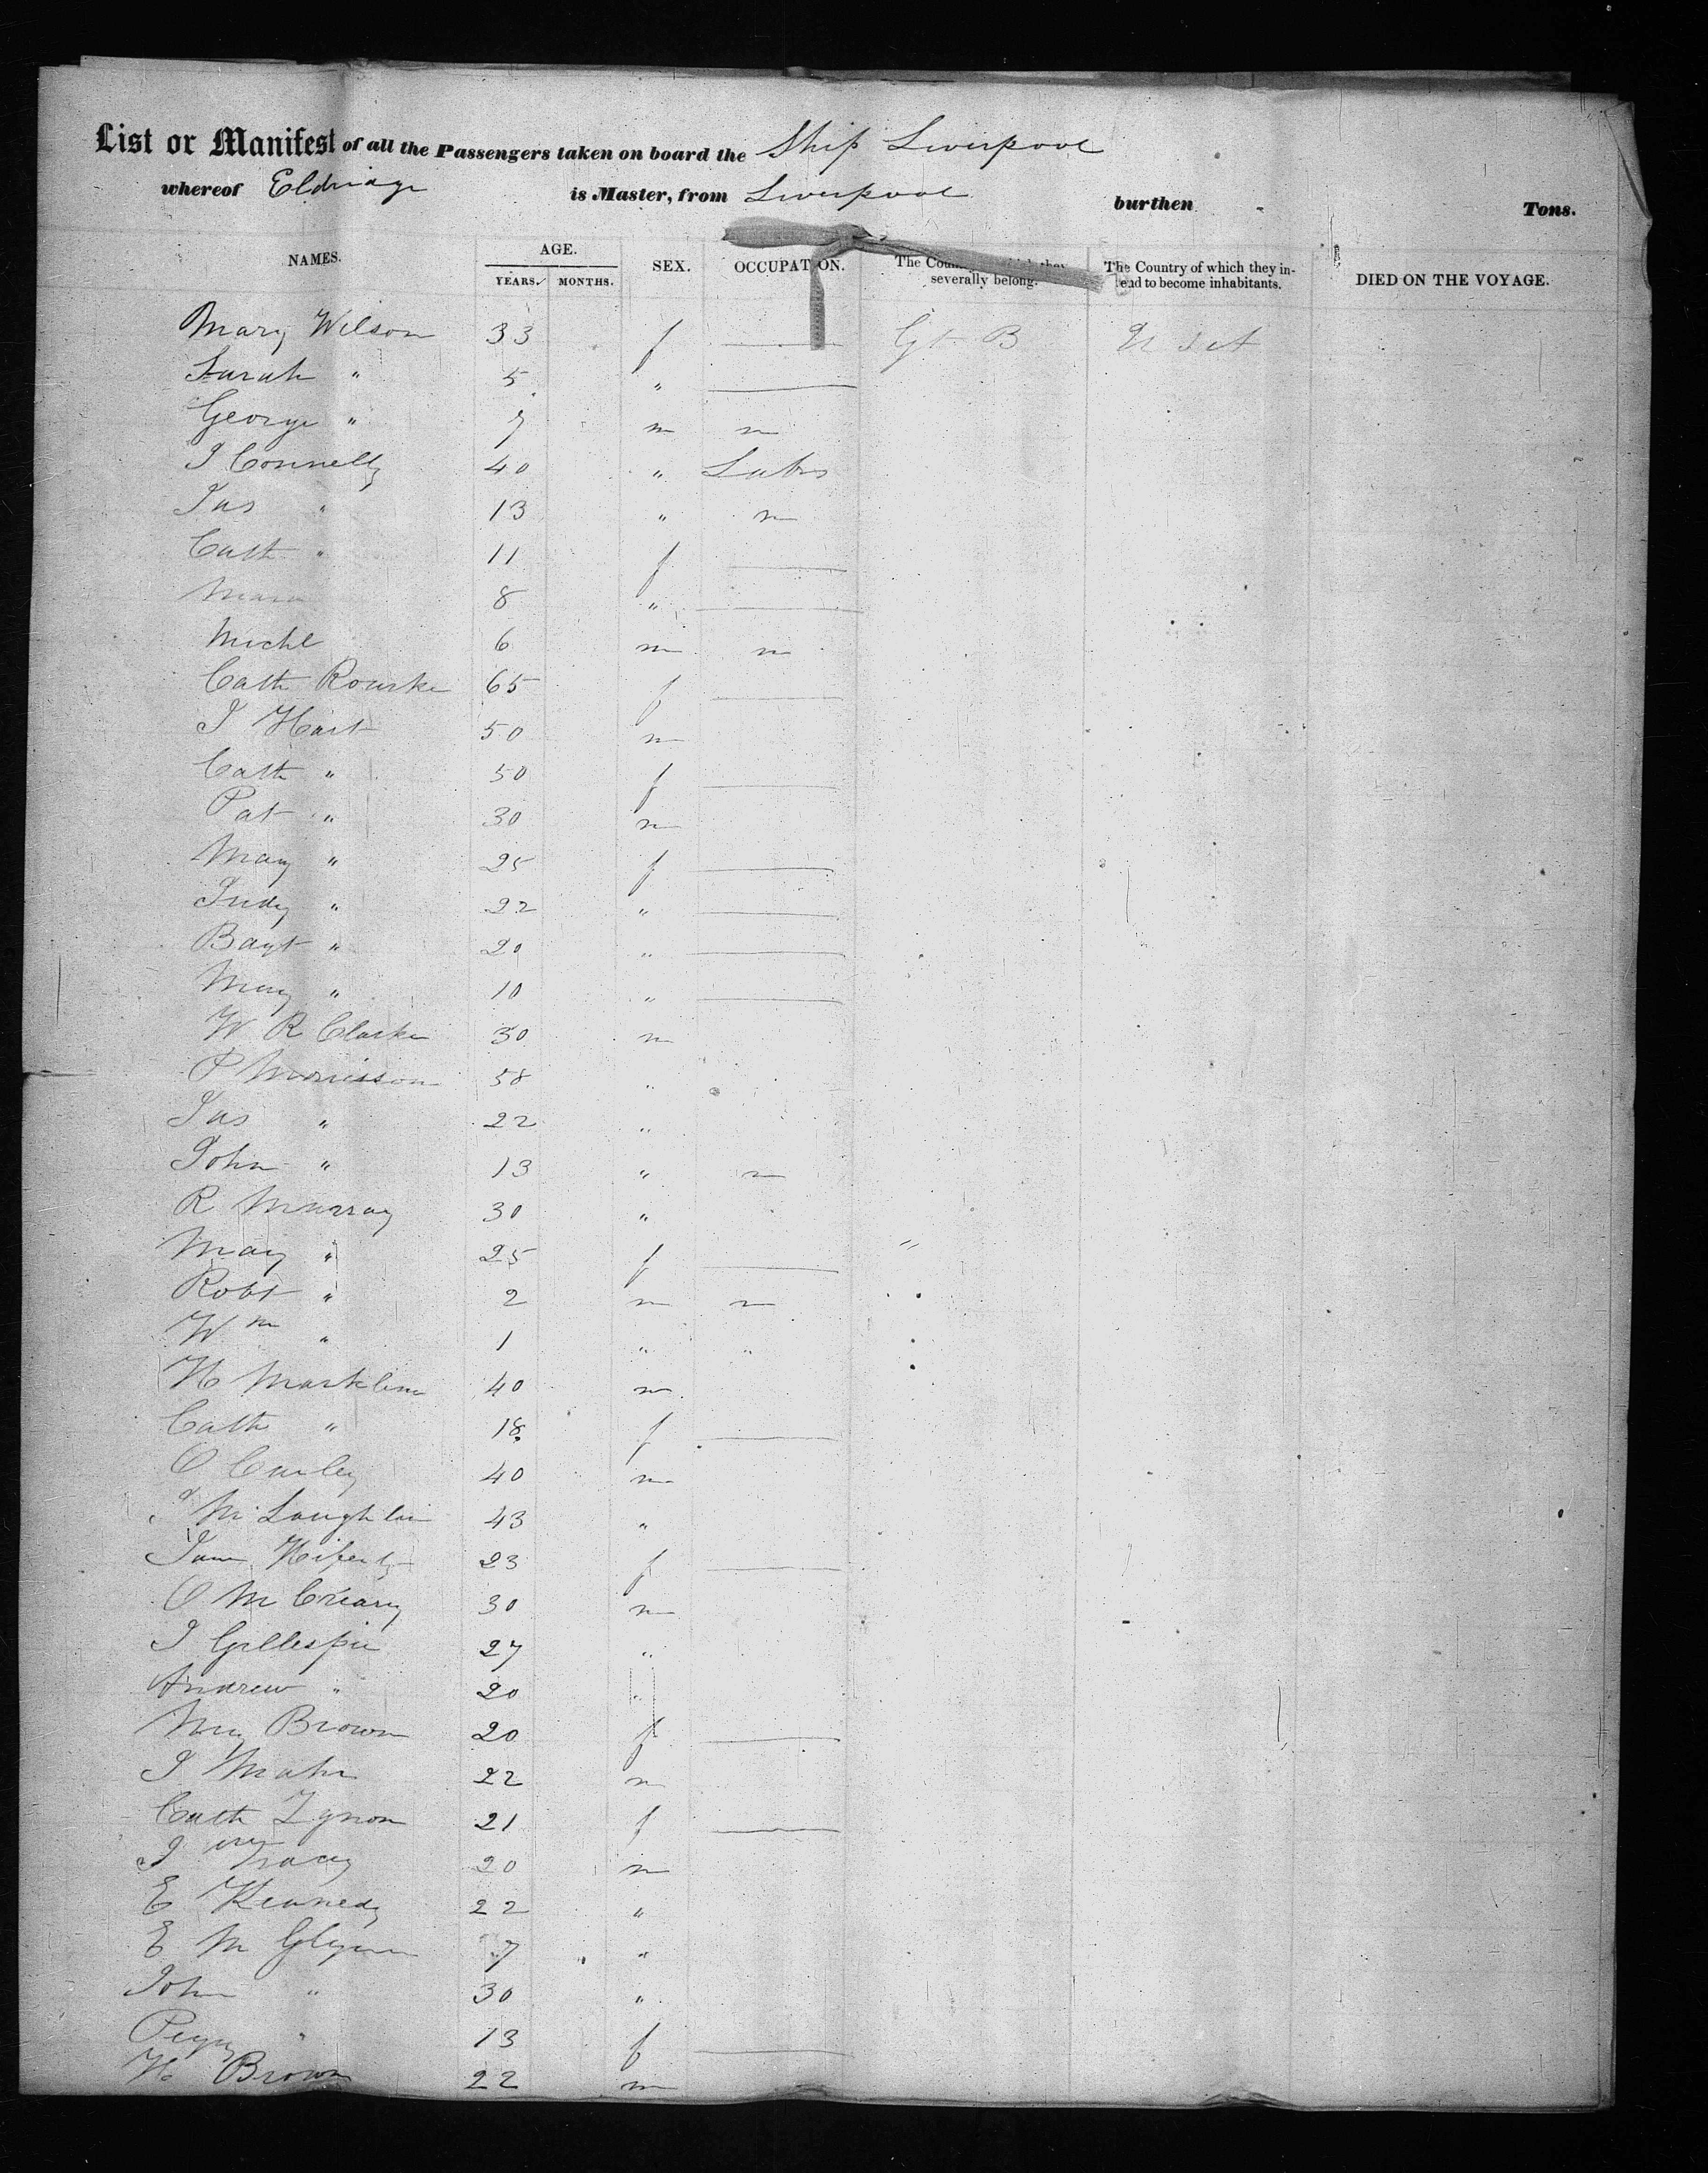 List or Manifest of all the Passengers taken on board the Ship Liverpool
whereof Eldridge is Master, from Liverpool burthen Tons.
NAMES. AGE. YEARS. MONTHS. SEX. OCCUPATION. The severally belong. The Country of which they intend to become inhabitants. DIED ON THE VOYAGE.
Mary Wilson 33 f Gt B U S A
Sarah " 5 "
George " 7 m m
J Connelly 40 " Labr
Jas " 13 " m
Cath " 11 f
8 "
Michl 6 m m
Cath Rourke 65 f
J Hart 50 m
Cath " 50 f
Pat " 30 m
Mary " 25 f
Judy " 22 "
" 20 "
Mary " 10 "
W R Clarke 30 m
P Morrisson 58 "
Jas " 22 "
John " 13 " m
R Murray 30 "
Mary " 25 f
Robt " 2 m m
Wm " 1 " "
40 m
Cath " 18 f
O Curley 40 m
McLaughlin 43 "
Jane 23 f
O McCreary 30 m
J Gillespie 27 "
Andrew " 20 "
Brown 20 f
J Mahr 22 m
Cath 21 f
J Tracy 20 m
E Kennedy 22 "
E M Glynn 7 "
John " 30 "
Peggy " 13 f
Brown 22 m